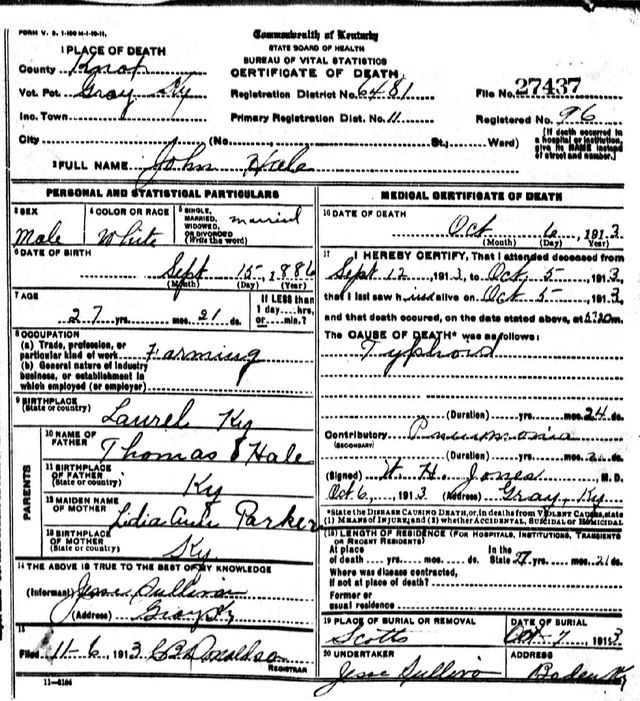 FORM V. S. 1-100 M-1-10-11.
Commonwealth of Kentucky
STATE BOARD OF HEALTH
BUREAU OF VITAL STATISTICS
CERTIFICATE OF DEATH
1 PLACE OF DEATH
County Knox
Vot. Pct. Gray Ky
Inc. Town
City
Registration District No. 6481
Primary Registration Dist. No. 11
(No. St.; Ward)
File No. 27437
Registered No. 96
(If death occurred in a hospital or institution, give its NAME instead of street and number.)
2 FULL NAME John Hale
PERSONAL AND STATISTICAL PARTICULARS
3 SEX
Male
4 COLOR OR RACE
White
5 SINGLE, MARRIED, WIDOWED, OR DIVORCED
(Write the word)
married
6 DATE OF BIRTH
Sept 15 1886
(Month) (Day) (Year)
7 AGE
27 yrs. mos. 21 ds.
If LESS than
1 day....hrs.
or....min.?
8 OCCUPATION
(a) Trade, profession, or
particular kind of work Farming
(b) General nature of industry
business, or establishment in
which employed (or employer)
9 BIRTHPLACE
(State or country)
Laurel Ky
PARENTS
10 NAME OF FATHER
Thomas Hale
11 BIRTHPLACE OF FATHER
(State or country)
Ky
12 MAIDEN NAME OF MOTHER
Lidia Parker
13 BIRTHPLACE OF MOTHER
(State or country)
Ky
14 THE ABOVE IS TRUE TO THE BEST OF MY KNOWLEDGE
(Informant) Jesse Sullivan
(Address) Gray Ky
15
Filed 11-6, 1913 C B Donaldson
REGISTRAR
11-3184
MEDICAL CERTIFICATE OF DEATH
16 DATE OF DEATH
Oct 6, 1913
(Month) (Day) (Year)
17 I HEREBY CERTIFY, That I attended deceased from
Sept 12, 1913, to Oct 5, 1913,
that I last saw h alive on Oct 5, 1913,
and that death occured, on the date stated above, at m.
The CAUSE OF DEATH* was as follows:
Typhoid
(Duration) yrs. mos. 24 ds.
Contributory Pneumonia
(SECONDARY)
(Duration) yrs. mos. ds.
(Signed) W. H. Jones M. D.
Oct 6, 1913 (Address) Gray, Ky
*State the DISEASE CAUSING DEATH, or, in deaths from VIOLENT CAUSES, state
(1) MEANS OF INJURY; and (2) whether ACCIDENTAL, SUICIDAL or HOMICIDAL
(18) LENGTH OF RESIDENCE (FOR HOSPITALS, INSTITUTIONS, TRANSIENTS
OR RECENT RESIDENTS)
At place In the
of death yrs. mos. ds. State 27 yrs. mos. 21 ds.
Where was disease contracted,
If not at place of death?
Former or
usual residence
19 PLACE OF BURIAL OR REMOVAL
Scotts
DATE OF BURIAL
Oct 7, 1913
20 UNDERTAKER
Jesse Sullivan
ADDRESS
Ky